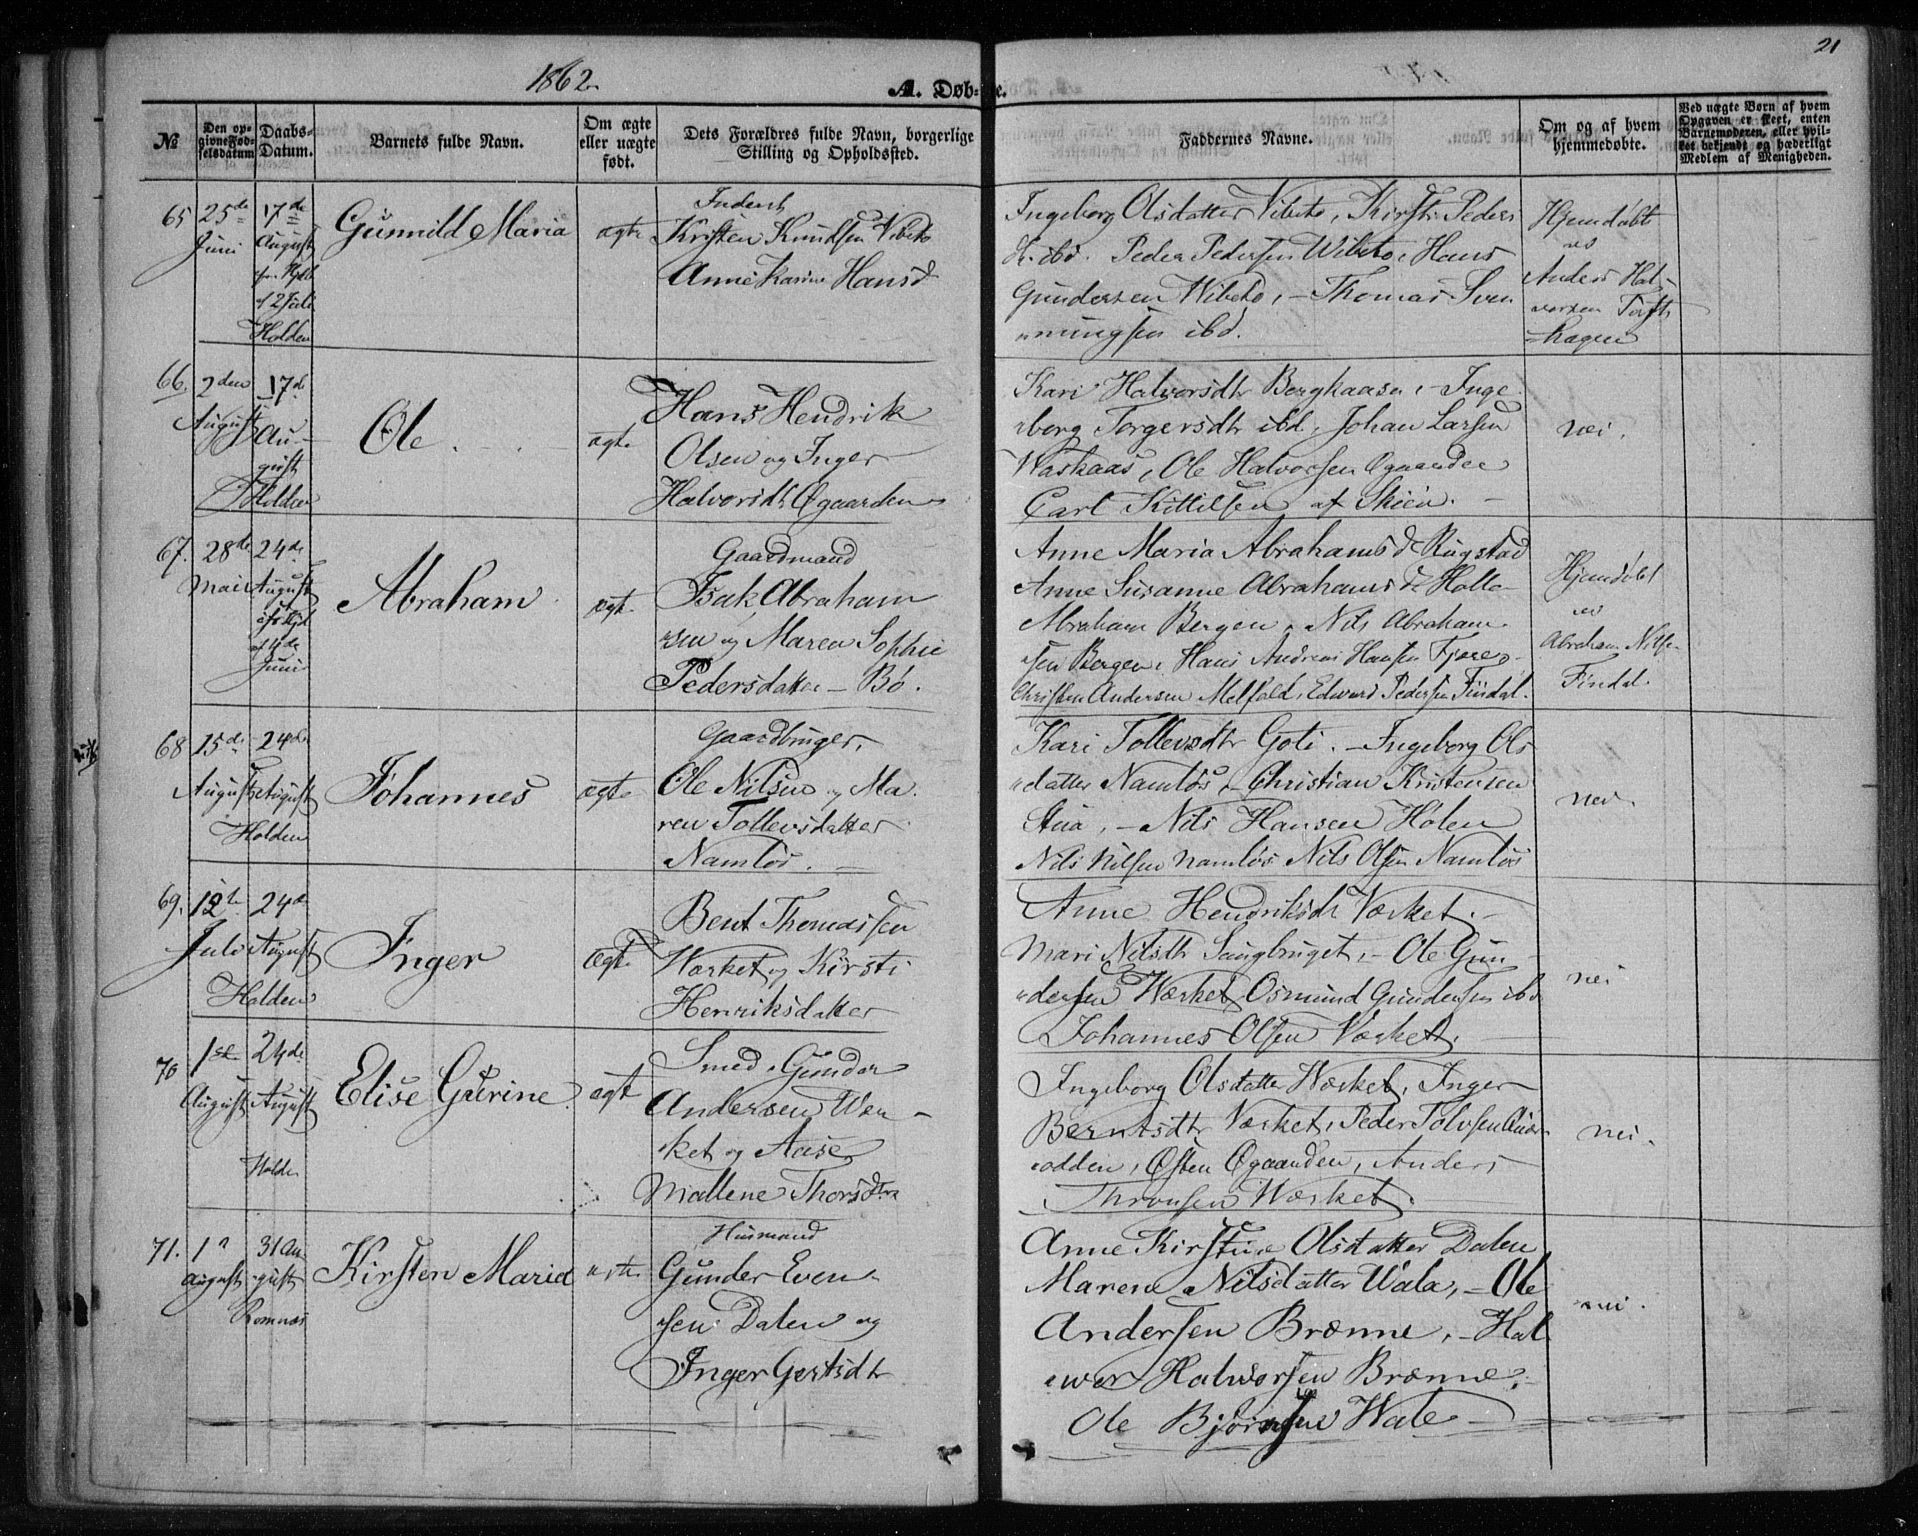 1862
A. Døb-te.
21
№
Den op-
givne Fød-
selsdatum
Daabs-
Datum.
Barnets fulde Navn.
Om ægte
eller uægte
født.
Dets Forældres fulde Navn, borgerlige
Stilling og Opholdssted.
Faddernes Navne.
Om og af hvem
hjemmedøbte.
Ved uægte Børn af hvem
Opgaven er skeet, enten
Barnemoderen, eller hvil-
ket bekjendt og hæderligt
Medlem af Menigheden.
65
25de
Juni
17de
August
12 Juli
Holden
Gunnild Maria
ægte
Inderst
Kristen Knudsen Vibeto
Anne Karine Hansd
Ingeborg Olsdatter Vibeto, Kirsti Peders
ibd. Peder Pedersen Wibeto, Hans
Gundersen Wibeto, - Thomas Sven
mungsen ibd.
Hjemdøbt
Anders Hal
vorsen
hagen
66.
2den
August
17de
Au-
gust
Holden
Ole
ægte
Hans Hendrik
Olsen og Inger
Halvorsdtr Øgaarden
Kari Halvorsdtr Berghaasen, - Inge
borg Torgersdtr ibd, Johan Larsen
Washaas, Ole Halvorsen Øgaarden
Carl Kittilsen af Skien.
nei.
67.
28de
Mai
24de
August
Juni
Abraham
ægte
Gaardmand
Isak Abraham
sen og Maren Sophie
Pedersdatter - Bø.
Anne Maria Abrahams d Rugstad
Anne Susanne Abrahams d Holte
Abraham Bergen, Nils Abraham
sen Bergen, Hans Andreas Hansen
Christen Andersen Melfald, Edvard Pedersen Findal.
Hjemdøbt
Abraham Nilse
Findal.
68
15de
August
24de
August
Holden
Johannes
ægte
Gaardbruger,
Ole Nilsen og Ma
ren Tollevsdatter
Namløs.
Kari Tollevsdtr Goti. - Ingeborg Ols
datter Namløs, Christian Kristensen
Stua, - Nils Hansen Holen
Nils Nilsen Namløs Nils Olsen Namløs
nei.
69.
12te
Juli
24de
August
Holden
Inger
ægte
Bent Thomassen
Værket og Kirsti
Henriksdatter
Anne Hendriksdtr Værket.
Mari Nilsdtr Saugbruget, - Ole Gun
dersen Værket, Osmund Gundersen ibd
Johannes Olsen Værket.
nei
70
1ste
August
24de
August
Holden
Elise Gurine
ægte
Smed, Gunder
Andersen Vær
ket og Aase
Mallene Thorsdtr
Ingeborg Olsdatter Værket, Inger
Berntsdtr Værket, Peder Tolvsen
odden, Østen Øgaarden, Anders
Thronsen Værket.
nei.
71.
1
August
31 Au
gust
Romnæs
Kirsten Maria
ægte
Husmand
Gunder Even
sen Dalen og
Inger Gertsdtr
Anne Kirstine Olsdatter Dalen
Maren Nilsdatter Wala, - Ole
Andersen Brænne, - Hal
wor Halworsen Brænne,
Ole Bjørnsen Wale
nei.